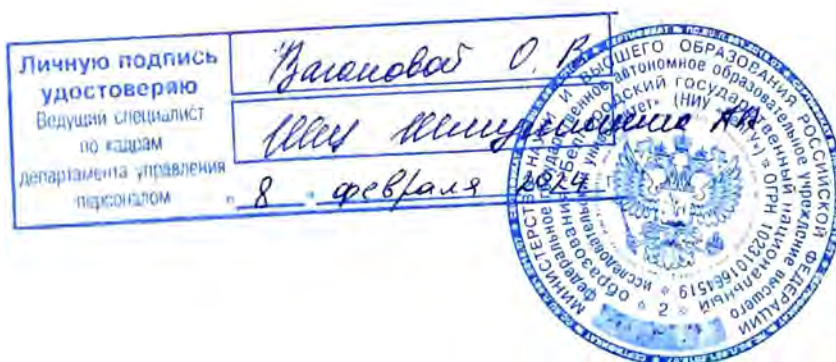 Личную подпись
удостоверяю
Ведущий специалист
по кадрам
департамента управления
персоналом
О. В.
" 8 " февраля 2024 г
МИНИСТЕРСТВО НАУКИ И ВЫСШЕГО ОБРАЗОВАНИЯ РОССИЙСКОЙ ФЕДЕРАЦИИ
федеральное государственное автономное образовательное учреждение высшего
образования «Белгородский государственный национальный
исследовательский университет» (НИУ «БелГУ») * ОГРН 1023101664519
* 2 *